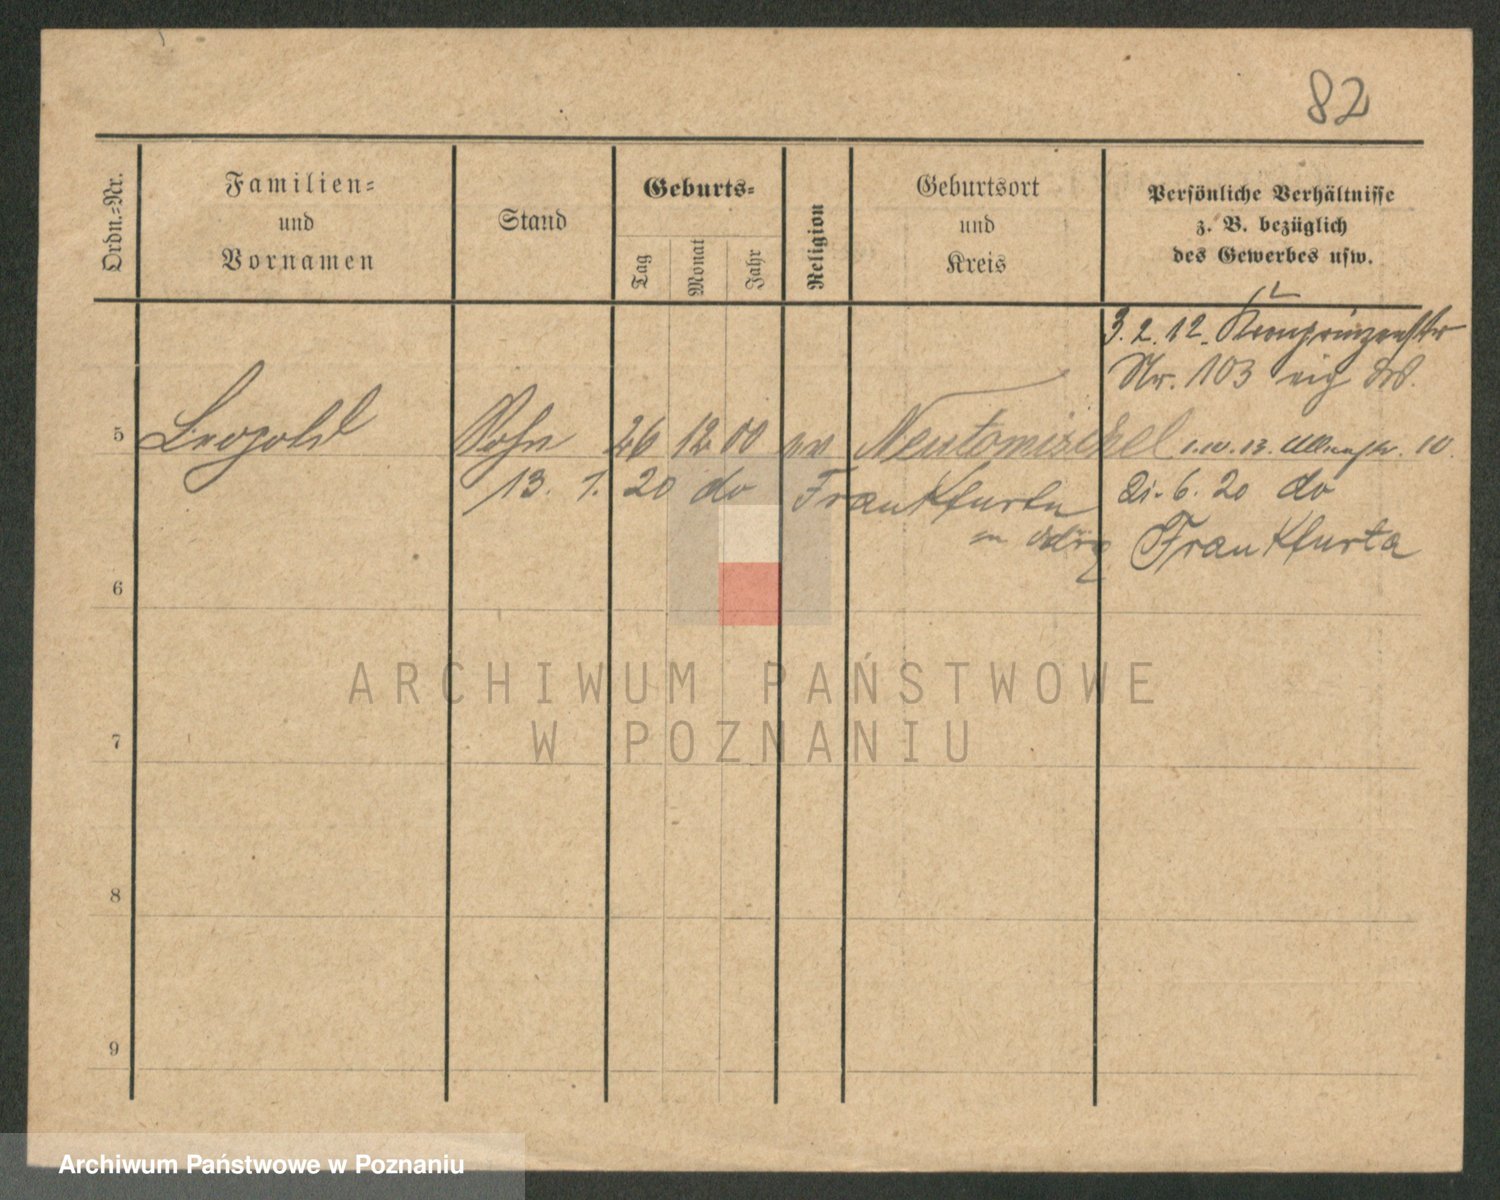 82
Ordn.-Nr.
Familien-
und
Vornamen
Stand
Geburts-
Tag
Monat
Jahr
Religion
Geburtsort
und
Kreis
Persönliche Verhältnisse
z. B. bezüglich
des Gewerbes usw.
3. 2. 12. Kronprinzenstr
Nr. 103
5 Leopold Sohn 26 12 00 Neutomischel 1. 10. 13. 10.
13. 1. 20 do Frankfurt 6. 20 do
Frankfurt a
6
7
8
9
ARCHIWUM PAŃSTWOWE
W POZNANIU
Archiwum Państwowe w Poznaniu